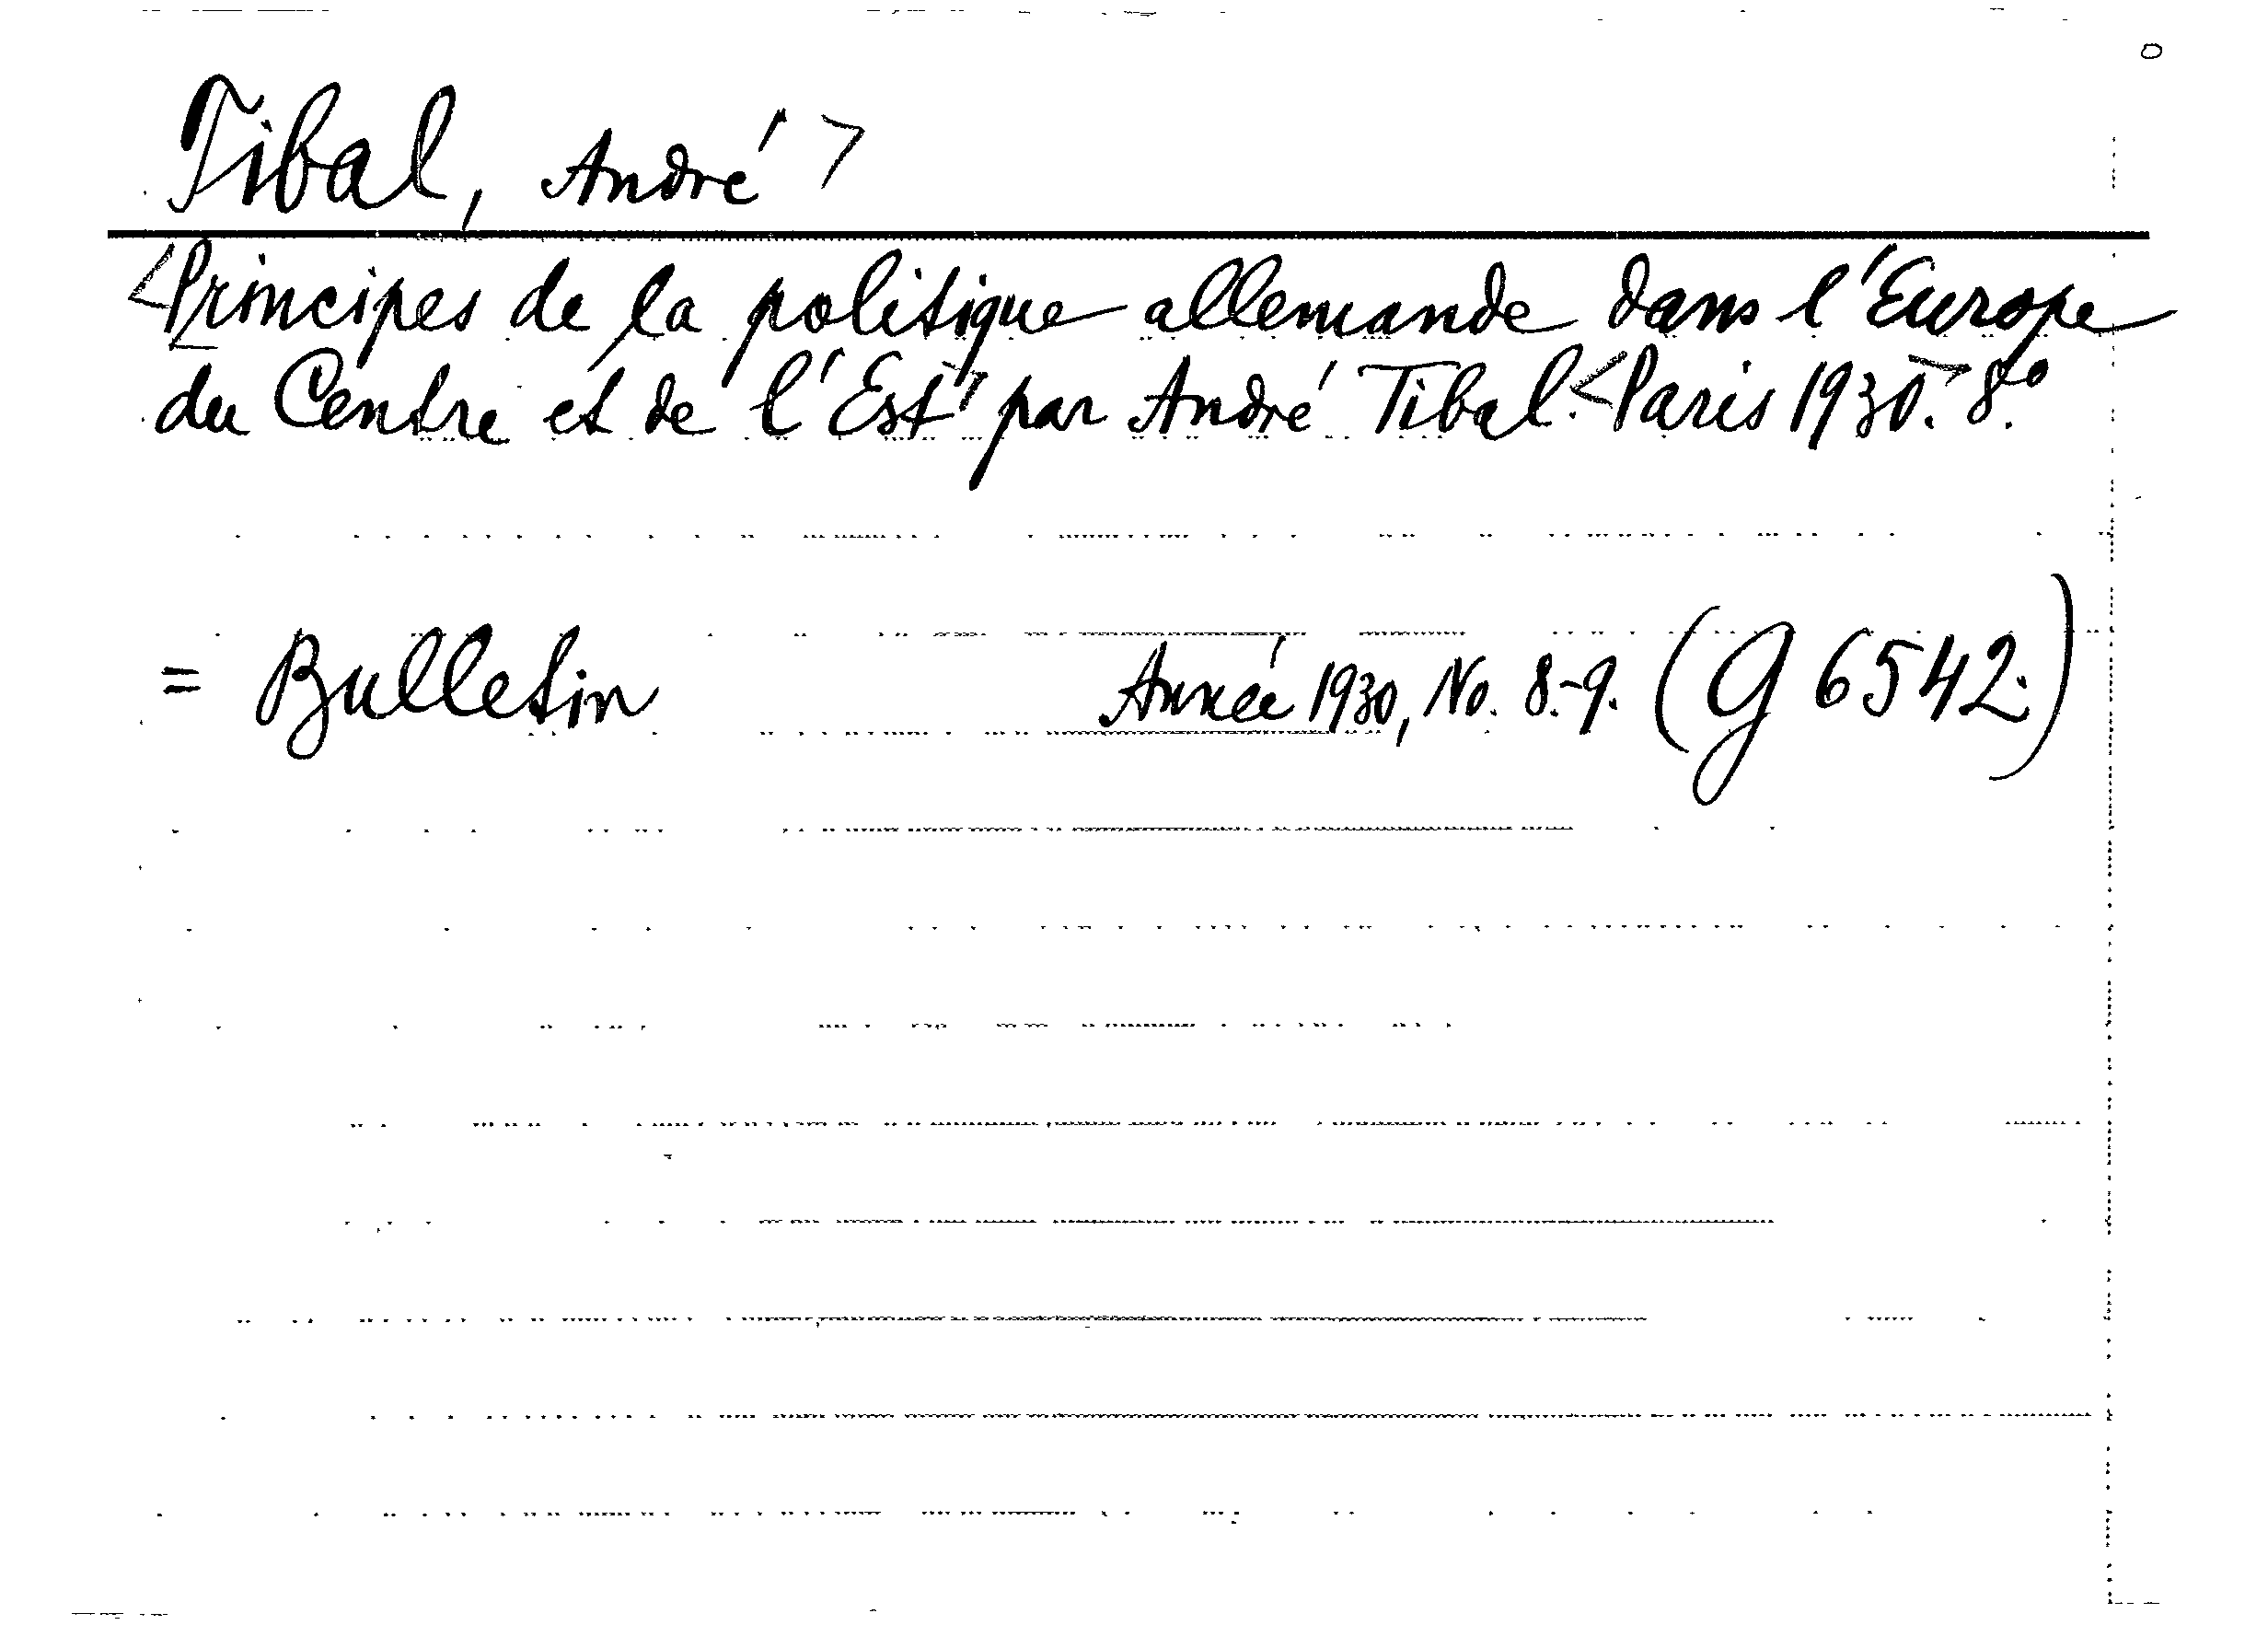 Tibal, André >
<Principes de la politique allemande dans l'Europe
du Centre et de l'Est> par André Tibal. <Paris 1930.> 8.°
= Bulletin Année 1930, No. 8.-9. (G 6542.)